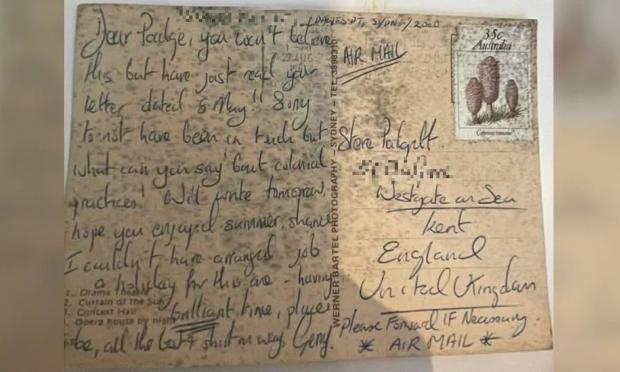 DAWES PT, SYDNEY, 2000
Dear Padge, you won't believe
this but have just read your
letter dated 5 May!! Sorry
to not have been in touch but
what can you say 'bout colonial
practices! Will write tomorrow,
hope you enjoyed summer, shame
I couldn't have arranged job
& holiday for this one - having
brilliant time, players
be, all the best & shirt on way. Gerry.
1. Drama Theatre
2. Curtain of the Sun
3. Concert Hall
4. Opera house by night
WERNER BARTEL PHOTOGRAPHY - SYDNEY - TEL.
AIR MAIL
35c
Australia
Steve Padgett.
Westgate on Sea
Kent
England
United Kingdom
Please Forward IF Necessary.
* AIR MAIL *